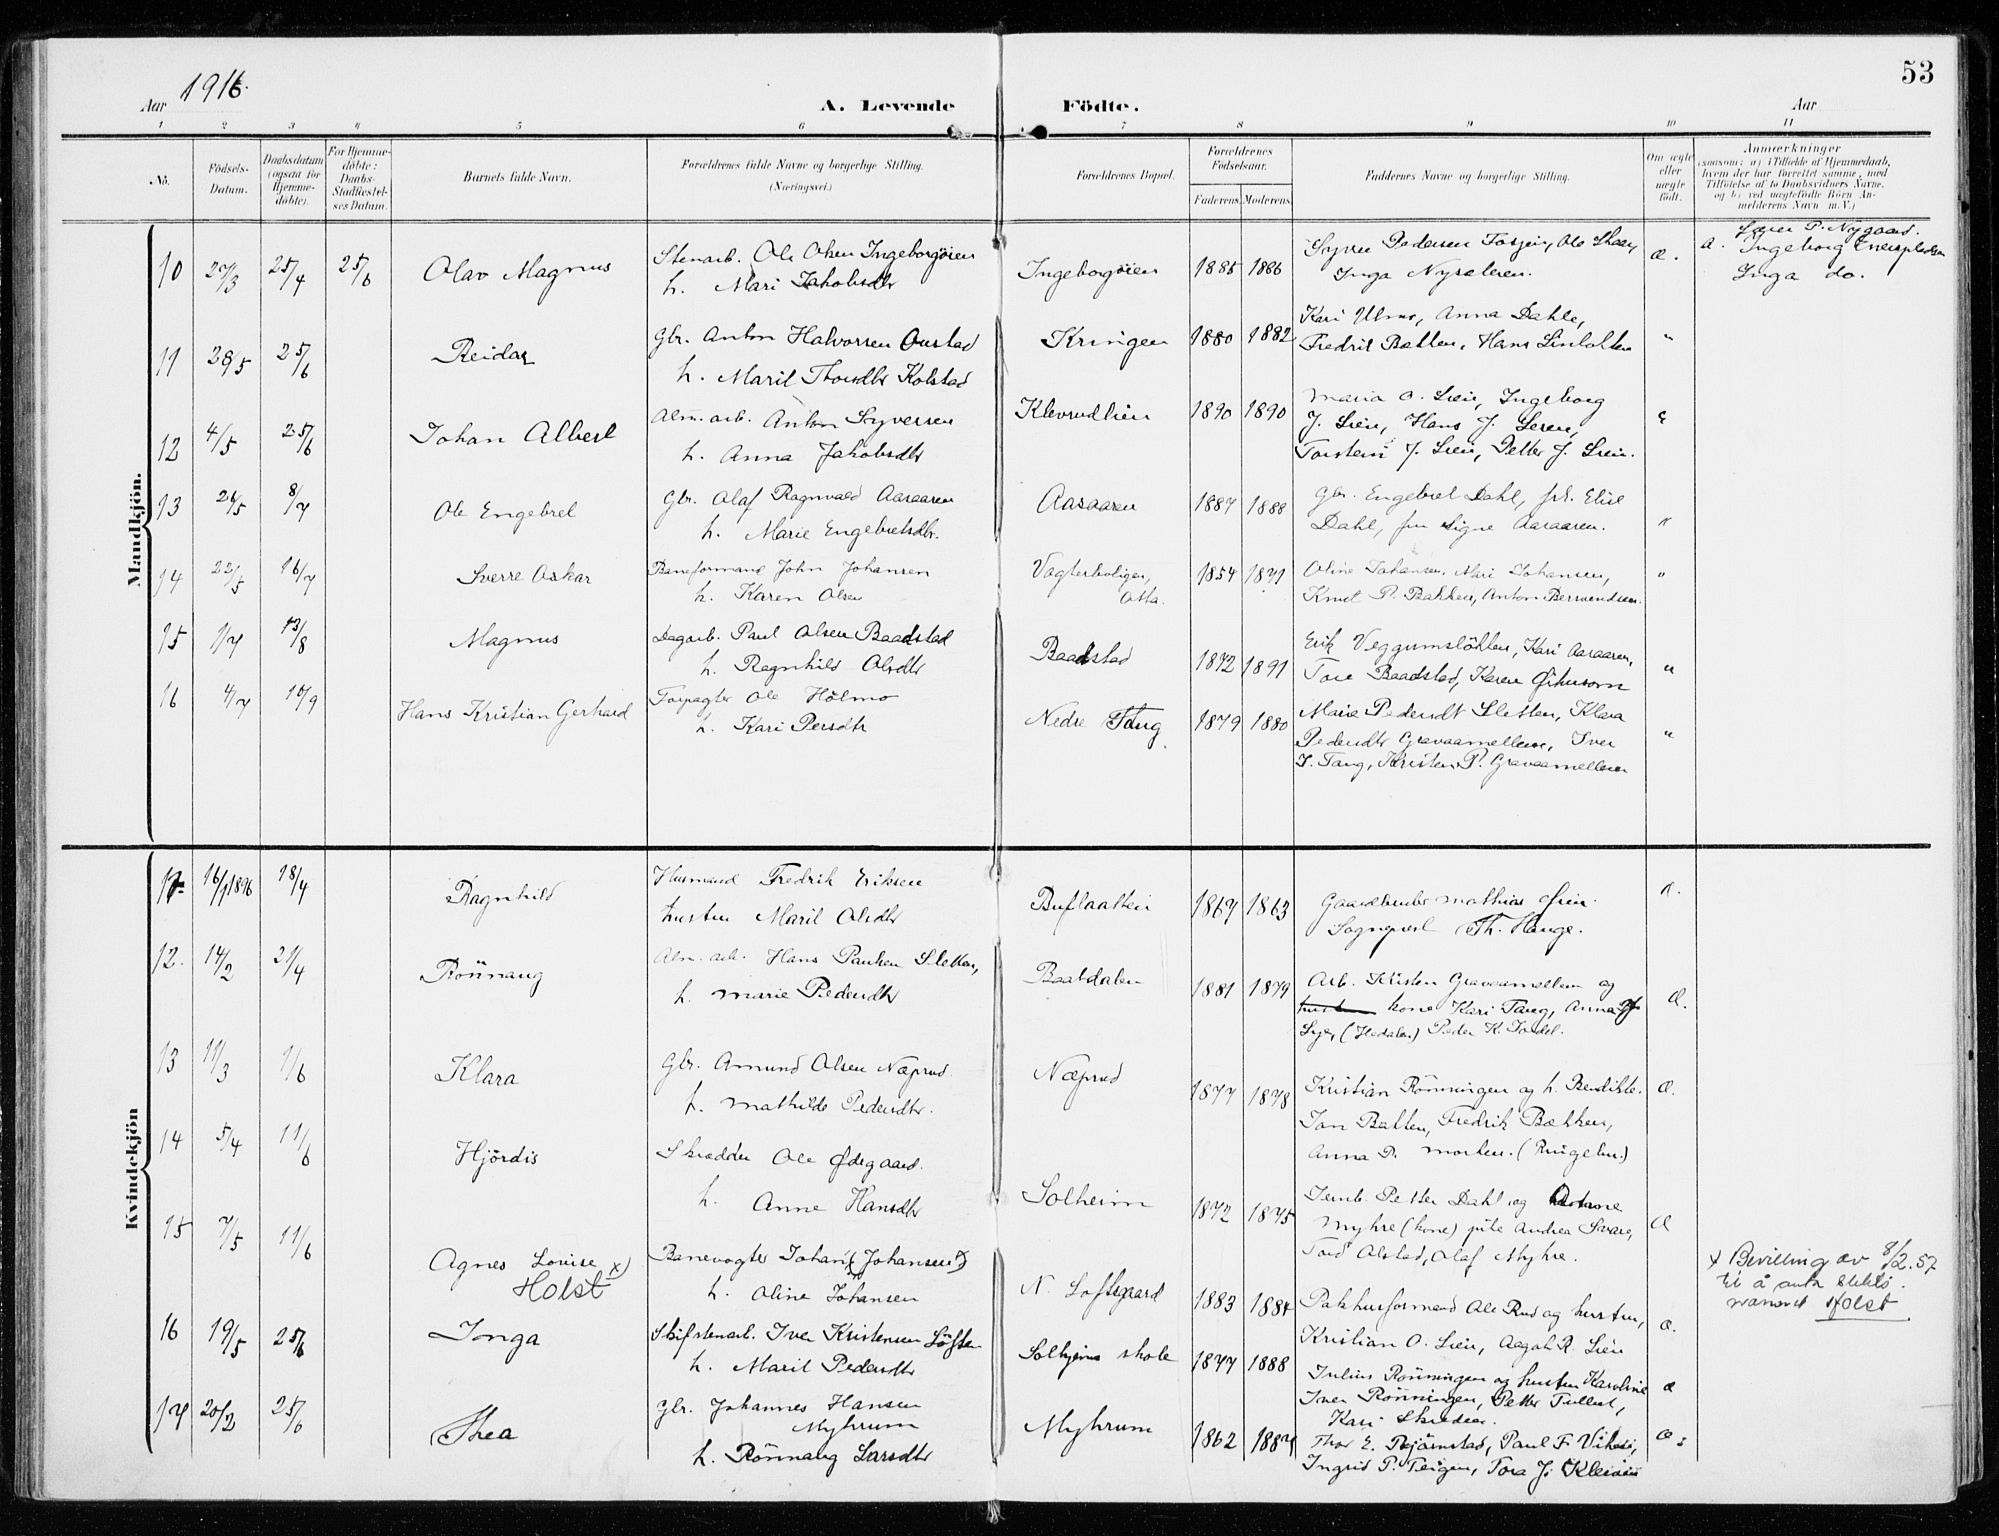 53
Aar 1916.
A. Levende Födte.
Aar
1 2 3 4 5 6 7 8 9 10 11
No.
Födsels-
Datum.
Daabsdatum
(ogsaa for
Hjemme-
döbte).
For Hjemme-
döbte:
Daabs-
Stadfæstel-
ses Datum.
Barnets fulde Navn.
Forældrenes fulde Navne og borgerlige Stilling.
(Næringsvei.)
Forældrenes Bopæl.
Forældrenes
Födselsaar.
Faderens. Moderens.
Faddernes Navne og borgerlige Stilling.
Om ægte
eller
uægte
født.
Anmærkninger
(saasom: a) i Tilfælde af Hjemmedaab,
hvem der har forrettet samme, med
Tilföielse af to Daabsvidners Navne,
og b) ved uægtefödte Börn An-
melderens Navn m. V.)
Mandkjön.
10 25/4 25/6 Olav Magnus
Stenarb. Ole Olsen Ingeborgöien
h. Mari Jakobsdtr
Ingeborgöien 1885 1886
Syver Pedersen
Inga Nysæteren.
æ.
Lærer P. Nygaard.
a. Ingeborg
Inga do.
11 28/5 25/6 Reidar
Gbr. Anton Halvorsen Onstad
h. Marit Thorsdtr Kolstad
Kringen 1880 1882
Kari Ulmo, Anna Dahle,
Fredrik Bakken, Hans
"
12 4/5 25/6 Johan Albert
Alm. arb. Anton Syversen
h. Anna Jakobsdtr
Klevrudlien 1890 1890
Maria O. Lien, Ingeborg
J. Lien, Hans J. Lien,
Torstein J. Lien, Petter J. Lien.
13 8/7 Ole Engebret
Gbr. Olaf Ragnvald Aasaaren
h. Marie Engebretsdtr.
Aasaaren 1887 1888
Gbr. Engebret Dahl, Elise
Dahl, Signe Aasaaren.
"
14 22/5 16/7 Sverre Oskar
Baneformand John Johansen
h. Karen Olsen
Vogterboligen,
Otta. 1854 1871
Oline Johansen, Mari Johansen,
Knut P. Bakken, Anton Berwendsen.
"
15 1/7 13/8 Magnus
Dagarb. Paul Olsen Baadstad
h. Ragnhild Olsdtr
Baadstad 1872 1891
Erik Veggumsløkken, Kari Aasaaren,
Tore Baadstad, Karen
"
16 4/7 Hans Kristian Gerhard
Forpagter Ole Holmo
h. Kari Persdtr
Nedre Tang 1879 1880
Marie Pedersdt Sletten, Klara
Pedersdtr Gravaamellem, Iver
I. Tang, Kristen P. Graveamellem
"
Kvindekjön
18/4 Ragnhild
Husmand Fredrik Eriksen
hustru Marit Olsdtr
1867 1863
Gaardbruker Mathias
Sogneprest Th. Hauge.
æ.
12. 14/2 21/4 Rönnaug
Alm. arb. Hans Paulsen Sletten,
h. Marie Pedersdtr
Baatdalen 1881 1879
Arb. Kristen Graveamellem og
hustru kone Kari Tang, Anna
(Hedalen) Peder K.
Æ.
13 11/3 1/6 Klara
Gbr. Amund Olsen Næprud.
h. Mathilde Pedersdtr.
Næprud 1877 1878
Kristian Rönningen og h. Bendikte.
Jon Bakken, Fredrik Bakken,
Anna P. Morken. (Ringebu.)
æ.
14 5/4 11/6 Hjördis
Skrædder Ole Ødegaard.
h. Anne Hansdtr
Solheim 1872 1875
Petter Dahl og
Myhre (kone) pike Andrea
Tord Alstad, Olaf Myhre.
Æ
15 7/5 11/6 Agnes Louise x)
Holst
Banevogter Johan (Johansen)
h. Oline Johansen
N. Loftsgaard 1883 1884
Pakhusformand Ole Rud og hustru,
Kristian O. Lien, Aagot R. Lien
æ.
x Bevilling av 8/2.57
til å anta slekts-
navnet Holst
16 19/5 25/6 Inga
Skifstenarb. Iver Kristensen
h. Marit Pedersdtr
Solhjems skole 1877 1888
Julius Rönningen og hustru Karoline
Iver Rönningen, Petter
Kari
æ
17 20/2 25/6 Thea
Gbr. Johannes Hansen
Myhrum
h. Rönnaug Larsdtr
Myhrum 1862
Thor E. Bjørnstad, Paul F.
Ingrid P. Teigen, Tora J. Kleiven
æ